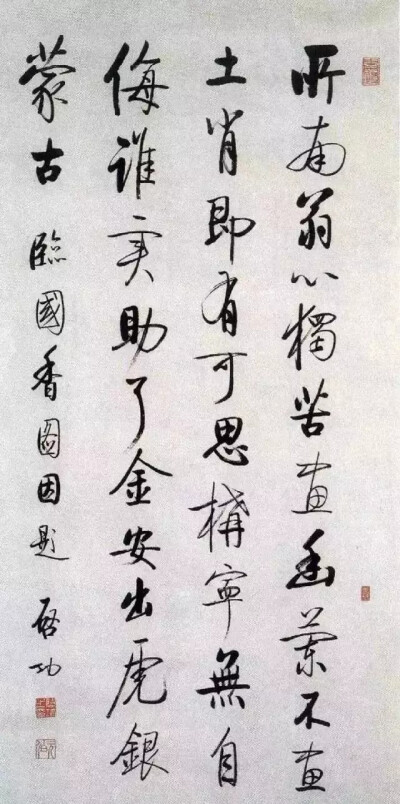 所南翁心独苦畫幽蘭不畫
土肖即有可思構寧無自
侮誰实助了金安出虎銀
蒙古 臨國香圖因題 啓功